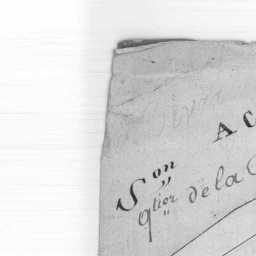 A C
S.on
q.tier de la C